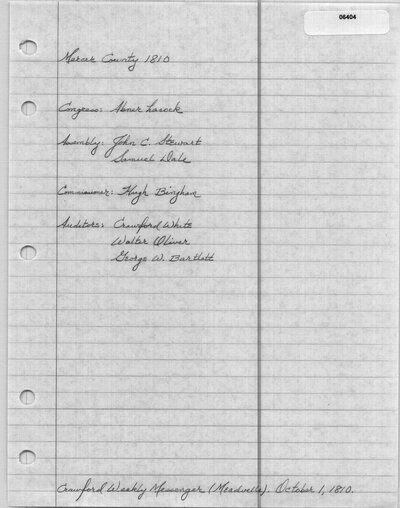 06404
Mercer County 1810
Congress: Abner Lacock
Assembly: John C. Stewart
Samuel Dale
Commissioner: Hugh Bingham
Auditors: Crawford White
Walter Oliver
George W. Bartlett
Crawford Weekly Messenger (Meadville). October 1, 1810.